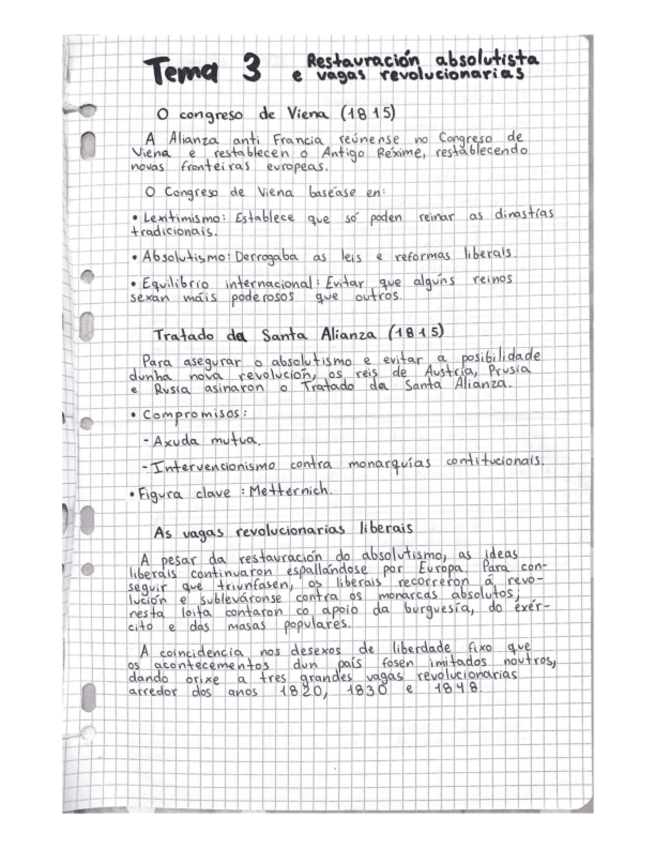 Tema 3 Restauración absolutista
e vagas revolucionarias
O congreso de Viena (1815)
A Alianza anti Francia reúnense no Congreso de
Viena e restablecen o Antigo Rexime, restablecendo
novas fronteiras europeas.
O Congreso de Viena baséase en:
• Lexitimismo: Establece que só poden reinar as dinastías
tradicionais.
• Absolutismo: Derrogaba as leis e reformas liberais.
• Equilibrio internacional: Evitar que algúns reinos
sexan máis poderosos que outros.
Tratado da Santa Alianza (1815)
Para asegurar o absolutismo e evitar a posibilidade
dunha nova revolución, os reis de Austria, Prusia
e Rusia asinaron o Tratado da Santa Alianza.
• Compromisos:
- Axuda mutua.
- Intervencionismo contra monarquías contitucionais.
• Figura clave: Metternich.
As vagas revolucionarias liberais
A pesar da restauración do absolutismo, as ideas
liberais continuaron espallándose por Europa. Para con-
seguir que triunfasen, os liberais recorreron á revo-
lución e subleváronse contra os monarcas absolutos;
nesta loita contaron co apoio da burguesía, do exér-
cito e das masas populares.
A coincidencia nos desexos de liberdade fixo que
os acontecementos dun país fosen imitados noutros,
dando orixe a tres grandes vagas revolucionarias
arredor dos anos 1820, 1830 e 1848.